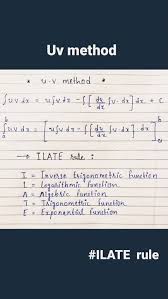 Uv method
* u.v method *
∫uv dx = u∫v dx - ∫[du/dx ∫v.dx] dx + c
∫ₐᵇ uv dx = [u∫v dx - ∫[du/dx ∫v.dx] dx]ₐᵇ
→ ILATE rule :
I = Inverse trigonometric function
L = Logarithmic function
A = Algebric function
T = Trigonometric function
E = Exponential function
#ILATE rule